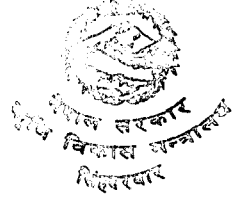 नेपाल सरकार
विकास मन्त्रालय
सिंहदरबार